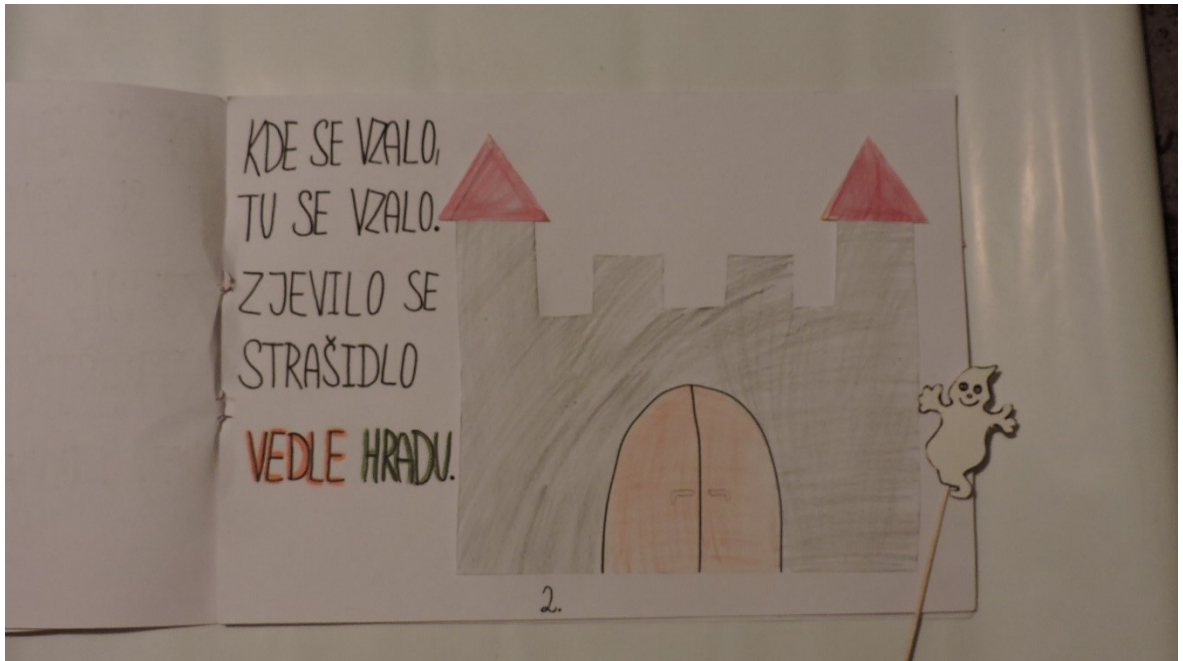 KDE SE VZALO,
TU SE VZALO.
ZJEVILO SE
STRAŠIDLO
VEDLE HRADU.
2.